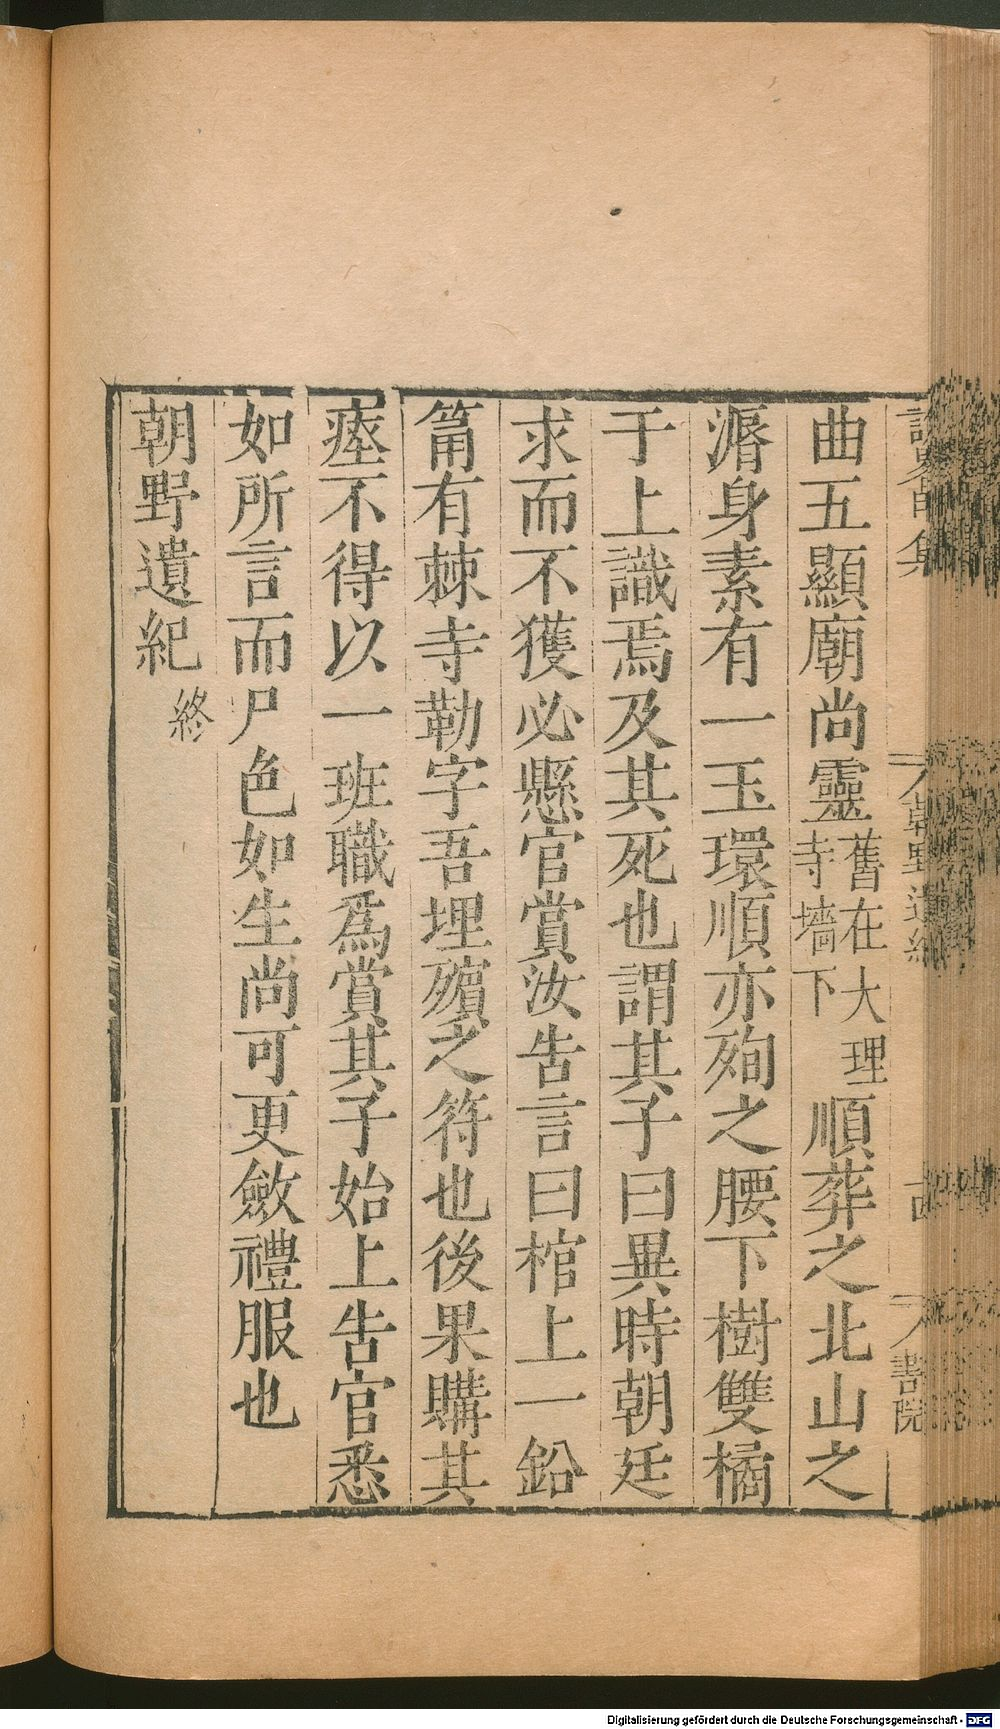 曲五顯廟尚靈舊在大理寺墻下順葬之北山之
漘身素有一玉環順亦殉之腰下樹雙橘
于上識焉及其死也謂其子曰異時朝廷
求而不獲必懸官賞汝告言曰棺上一鉛
筩有棘寺勒字吾埋殯之符也後果購其
瘞不得以一班職爲賞其子始上告官悉
如所言而尸色如生尚可更斂禮服也
朝野遺紀終
書院
Digitalisierung gefördert durch die Deutsche Forschungsgemeinschaft - DFG